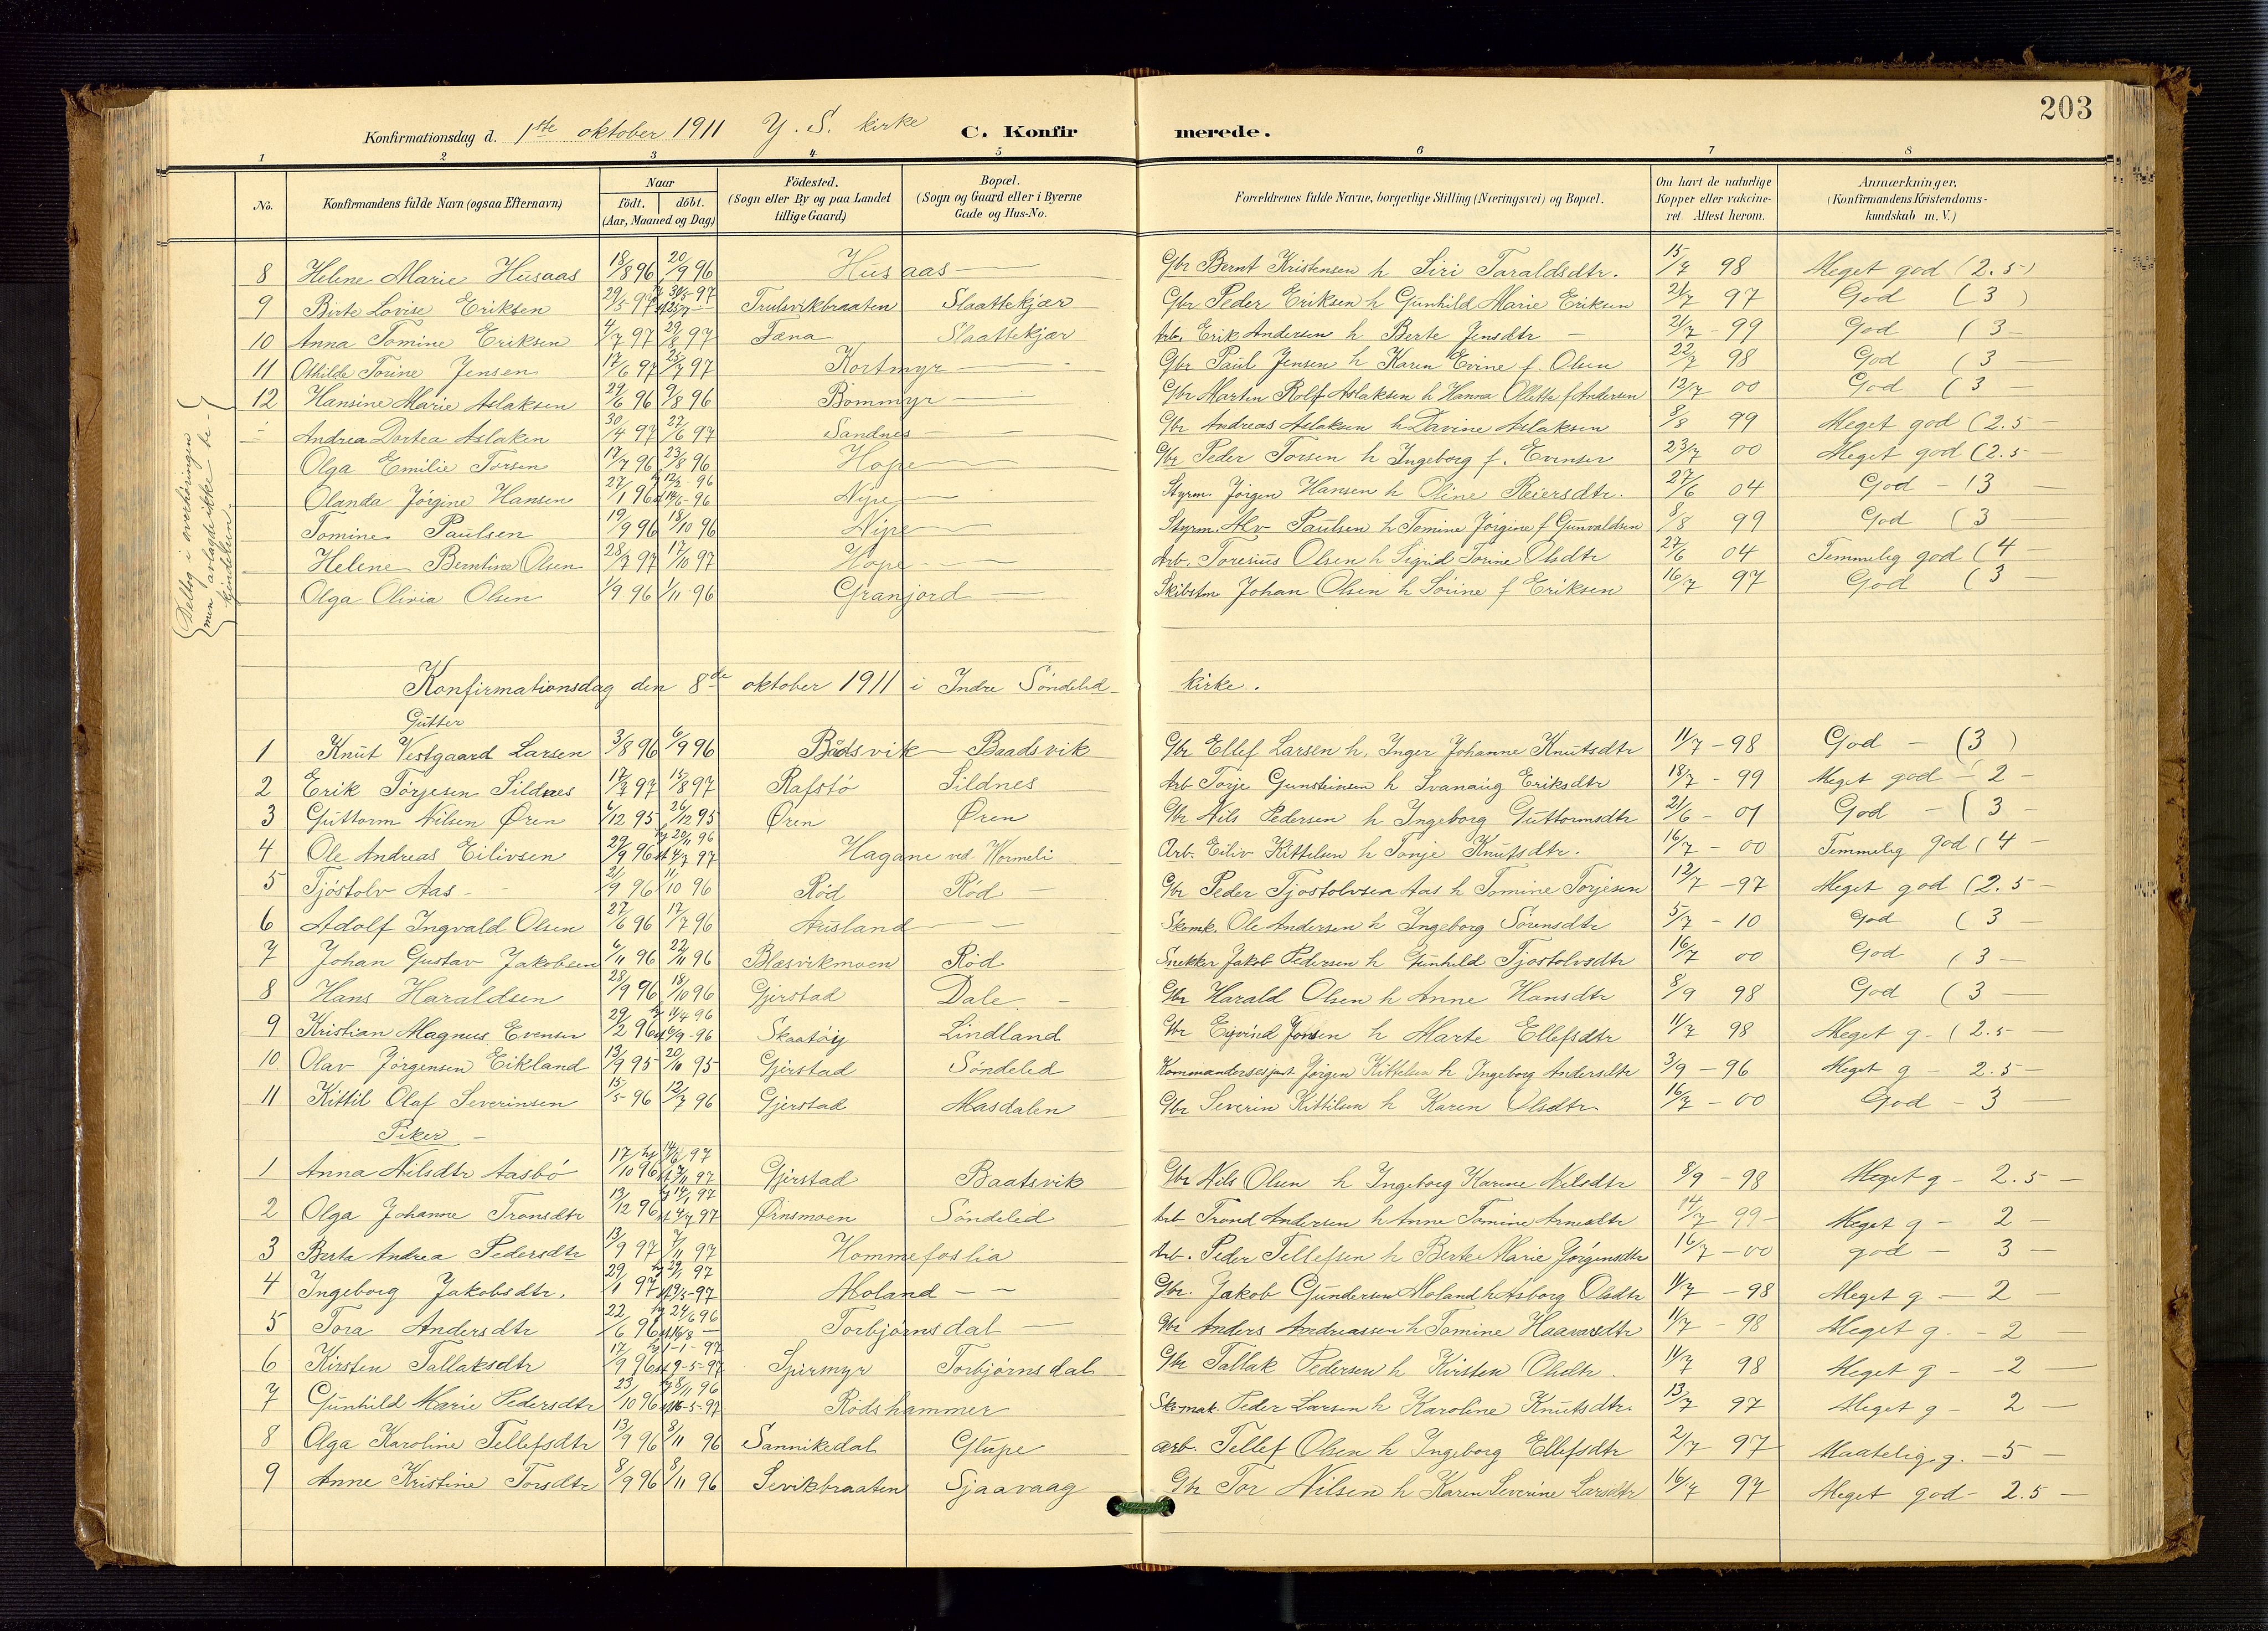 203
Konfirmationsdag d. 1ste oktober 1911 Y. S. kirke C. Konfir merede.
1 2 3 4 5 6 7 8
No. Konfirmandens fulde Navn (ogsaa Efternavn) Naar födt. döbt. (Aar, Maaned og Dag) Födested. (Sogn eller By og paa Landet tillige Gaard) Bopæl. (Sogn og Gaard eller i Byerne Gade og Hus-No. Forældrenes fulde Navne, borgerlige Stilling (Næringsvei) og Bopæl. Om havt de naturlige Kopper eller vakcineret. Attest herom. Anmærkninger. (Konfirmandens Kristendomskundskab m. V.)
8 Helene Marie Husaas 18/8 96 20/9 96 Husaas — Gbr Bernt Kristensen h Siri Taraldsdtr. 15/7 98 Meget god (2.5)
9 Birte Lovise Eriksen 29/5 97 30/5 97 Trulsvikbraaten Slaattekjær Gbr Peder Eriksen h Gunhild Marie Eriksen 21/7 97 God (3)
10 Anna Tomine Eriksen 4/7 97 29/8 97 Fæna Slaattekjær Arb. Erik Andersen h Berte Jensdtr — 21/7 - 99 God (3 -
11 Othilde Torine Jensen 17/6 97 25/7 97 Kortmyr — Gbr Paul Jensen h Karen Evine f. Olsen 22/7 98 God (3 —
12 Hansine Marie Aslaksen 29/6 96 9/8 96 Bommyr — Gbr Martin Rolf Aslaksen h Hanna Ollette f Andersen 12/7 00 God (3 —
Andrea Dortea Aslaken 30/4 97 27/6 97 Sandnes — Gbr Andreas Aslaksen h Davine Aslaksen 8/8 99 Meget god (2.5 —
Olga Emilie Torsen 17/7 96 23/8 96 Hope — Gbr Peder Torsen h Ingeborg f. Evensen 23/7 00 Meget god (2.5 -
Olanda Jørgine Hansen 27/1 96 hj 12/2 - 96 st 14/6 - 96 Nipe — Styrm. Jörgen Hansen h Oline Reiersdtr. 27/6 04 God - (3 —
Tomine Paulsen 19/9 96 18/10 96 Nipe — Styrm. Alv Paulsen h Tomine Jörgine f Gunvaldsen 8/8 99 God (3
Helene Berntine Olsen 28/7 97 17/10 97 Hope — Arb. Toresius Olsen h Sigrid Torine Olsdtr 27/6 04 Temmelig god (4 —
Olga Olivia Olsen 1/9 96 1/11 96 Granjord — Skibstm Johan Olsen h Sörine f Eriksen 16/7 97 God (3 —
(Deltog i overhöringen men avlagde ikke bekjendelsen.)
Konfirmationsdag den 8de oktober 1911 i Indre Söndeled kirke.
Gutter
1 Knut Vestgaard Larsen 3/8 96 6/9 96 Bådsvik — Baadsvik Gbr Ellef Larsen h. Inger Johanne Knutsdtr 11/7 - 98 God - (3)
2 Erik Torjesen Sildnes 17/7 97 15/8 97 Rafstö Sildnes Arb Torje Gunsteinsen h Svanaug Eriksdtr 18/7 - 99 Meget god - 2 -
3 Guttorm Nilsen Øren 6/12 95 26/12 95 Øren Øren Gbr Nils Pedersen h Ingeborg Guttormsdtr 21/6 - 01 God - (3 -
4 Ole Andreas Eilivsen 29/9 96 hj 20/11 96 st 4/7 97 Hagane ved Hormeli Arb. Eiliv Kittelsen h Tonje Knutsdtr. 16/7 - 00 Temmelig god (4 -
5 Tjöstolv Aas - 21/9 96 11/10 96 Röd Röd — Gbr Peder Tjostolvsen Aas h Tomine Torjesen 12/7 - 97 Meget god (2.5 —
6 Adolf Ingvald Olsen 27/6 96 17/7 96 Ausland — Skomk. Ole Andersen h Ingeborg Sörensdtr 5/7 - 10 God (3 —
7 Johan Gustav Jakobsen 6/11 96 22/11 96 Blæsvikmoen Röd Snekker Jakob Pedersen h Gunhild Tjostolvsdtr 16/7 00 God (3 —
8 Hans Haraldsen 28/9 96 18/10 96 Gjerstad Dale - Gbr Harald Olsen h Anne Hansdtr 8/9 98 God (3 —
9 Kristian Magnus Evensen 29/2 96 hj 11/4 96 st 6/9 - 96 Skaatöy Lindland Gbr Eivind Jonsen h Marte Ellefsdtr 11/7 98 Meget g - (2.5 —
10 Olav Jörgensen Eikland 13/9 95 20/10 95 Gjerstad Söndeled Kommandersersjant Jörgen Kittelsen h Ingeborg Andersdtr 3/9 - 96 Meget g - 2.5 —
11 Kittil Olaf Severinsen 15/5 - 96 12/7 96 Gjerstad Masdalen Gbr Severin Kittilsen h Karen Olsdtr. 16/7 - 00 God - 3 —
Piker —
1 Anna Nilsdtr Aasbö 17/10 96 hj 14/6 97 st 7/11 97 Gjerstad Baatsvik Gbr Nils Olsen h Ingeborg Karine Nilsdtr 8/9 - 98 Meget g - 2.5 —
2 Olga Johanne Tronsdtr 13/12 96 hj 14/1 97 st 4/7 97 Ørnsmoen Söndeled Arb Trond Andersen h Anne Tomine Arnesdtr 14/7 99 - Meget g - 2 —
3 Berte Andrea Pedersdtr 13/9 97 7/11 97 Hommefoslia Arb. Peder Tellefsen h Berte Marie Jörgensdtr 16/7 - 00 god - 3 —
4 Ingeborg Jakobsdtr. 29/1 97 hj 29/1 97 st 19/5 - 97 Moland — Gbr. Jakob Gundersen Moland h Asborg Olsdtr 11/7 - 98 Meget g — 2 —
5 Tora Andersdtr 22/6 96 hj 24/6 96 st 16/8 — Torbjörnsdal — Gbr Anders Andreassen h Tomine Haavarsdtr 11/7 - 98 Meget g. - 2 —
6 Kirsten Tallaksdtr 17/9 96 hj 1-1-97 st 9-5-97 Sjirmyr Torbjörnsdal Gbr Tallak Pedersen h Kirsten Olsdtr. 11/7 98 Meget g - -2 —
7 Gunhild Marie Pedersdtr 23/10 96 hj 8/11 96 st 16-5-97 Rödshammer Skomak. Peder Larsen h Karoline Knutsdtr. 13/7 97 Meget g - 2 —
8 Olga Karoline Tellefsdtr 13/9 96 8/11 96 Sannikedal Glupe arb. Tellef Olsen h Ingeborg Ellefsdtr 2/7 97 Maatelig g. -5 —
9 Anne Kristine Torsdtr 8/9 96 8/11 96 Sevikbraaten Sjaavaag Gbr Tor Nilsen h Karen Severine Larsdtr 16/7 97 Meget god - 2.5 —